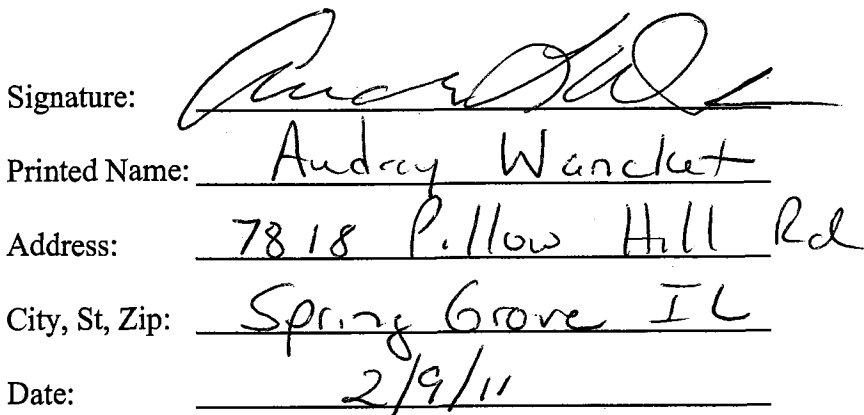 Signature:
Printed Name: Audrey Wancket
Address: 7818 Pillow Hill Rd
City, St, Zip: Spring Grove IL
Date: 2/9/11